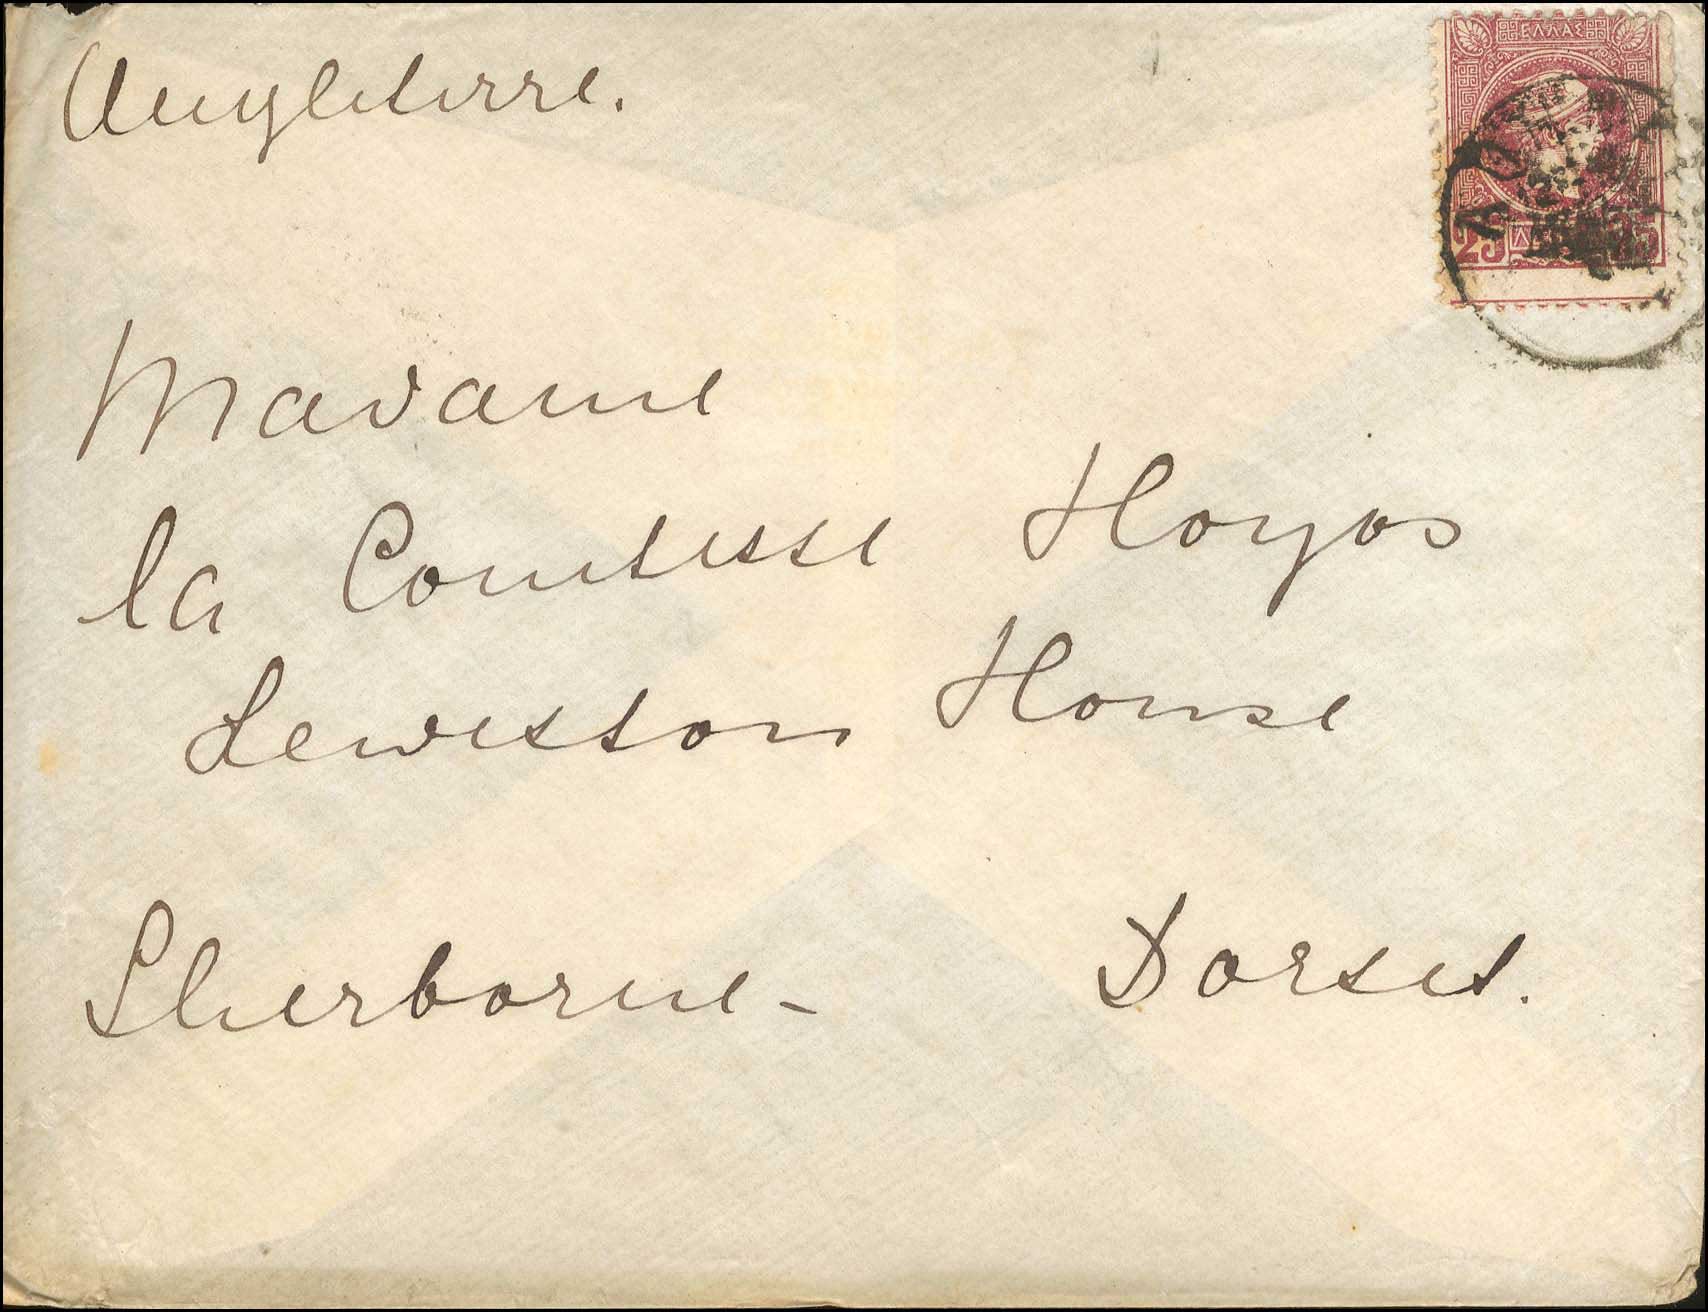 Angleterre.
ΕΛΛΑΣ
25
Madame
la Comtesse Hoyos
Leweston House
Sherborne - Dorset.